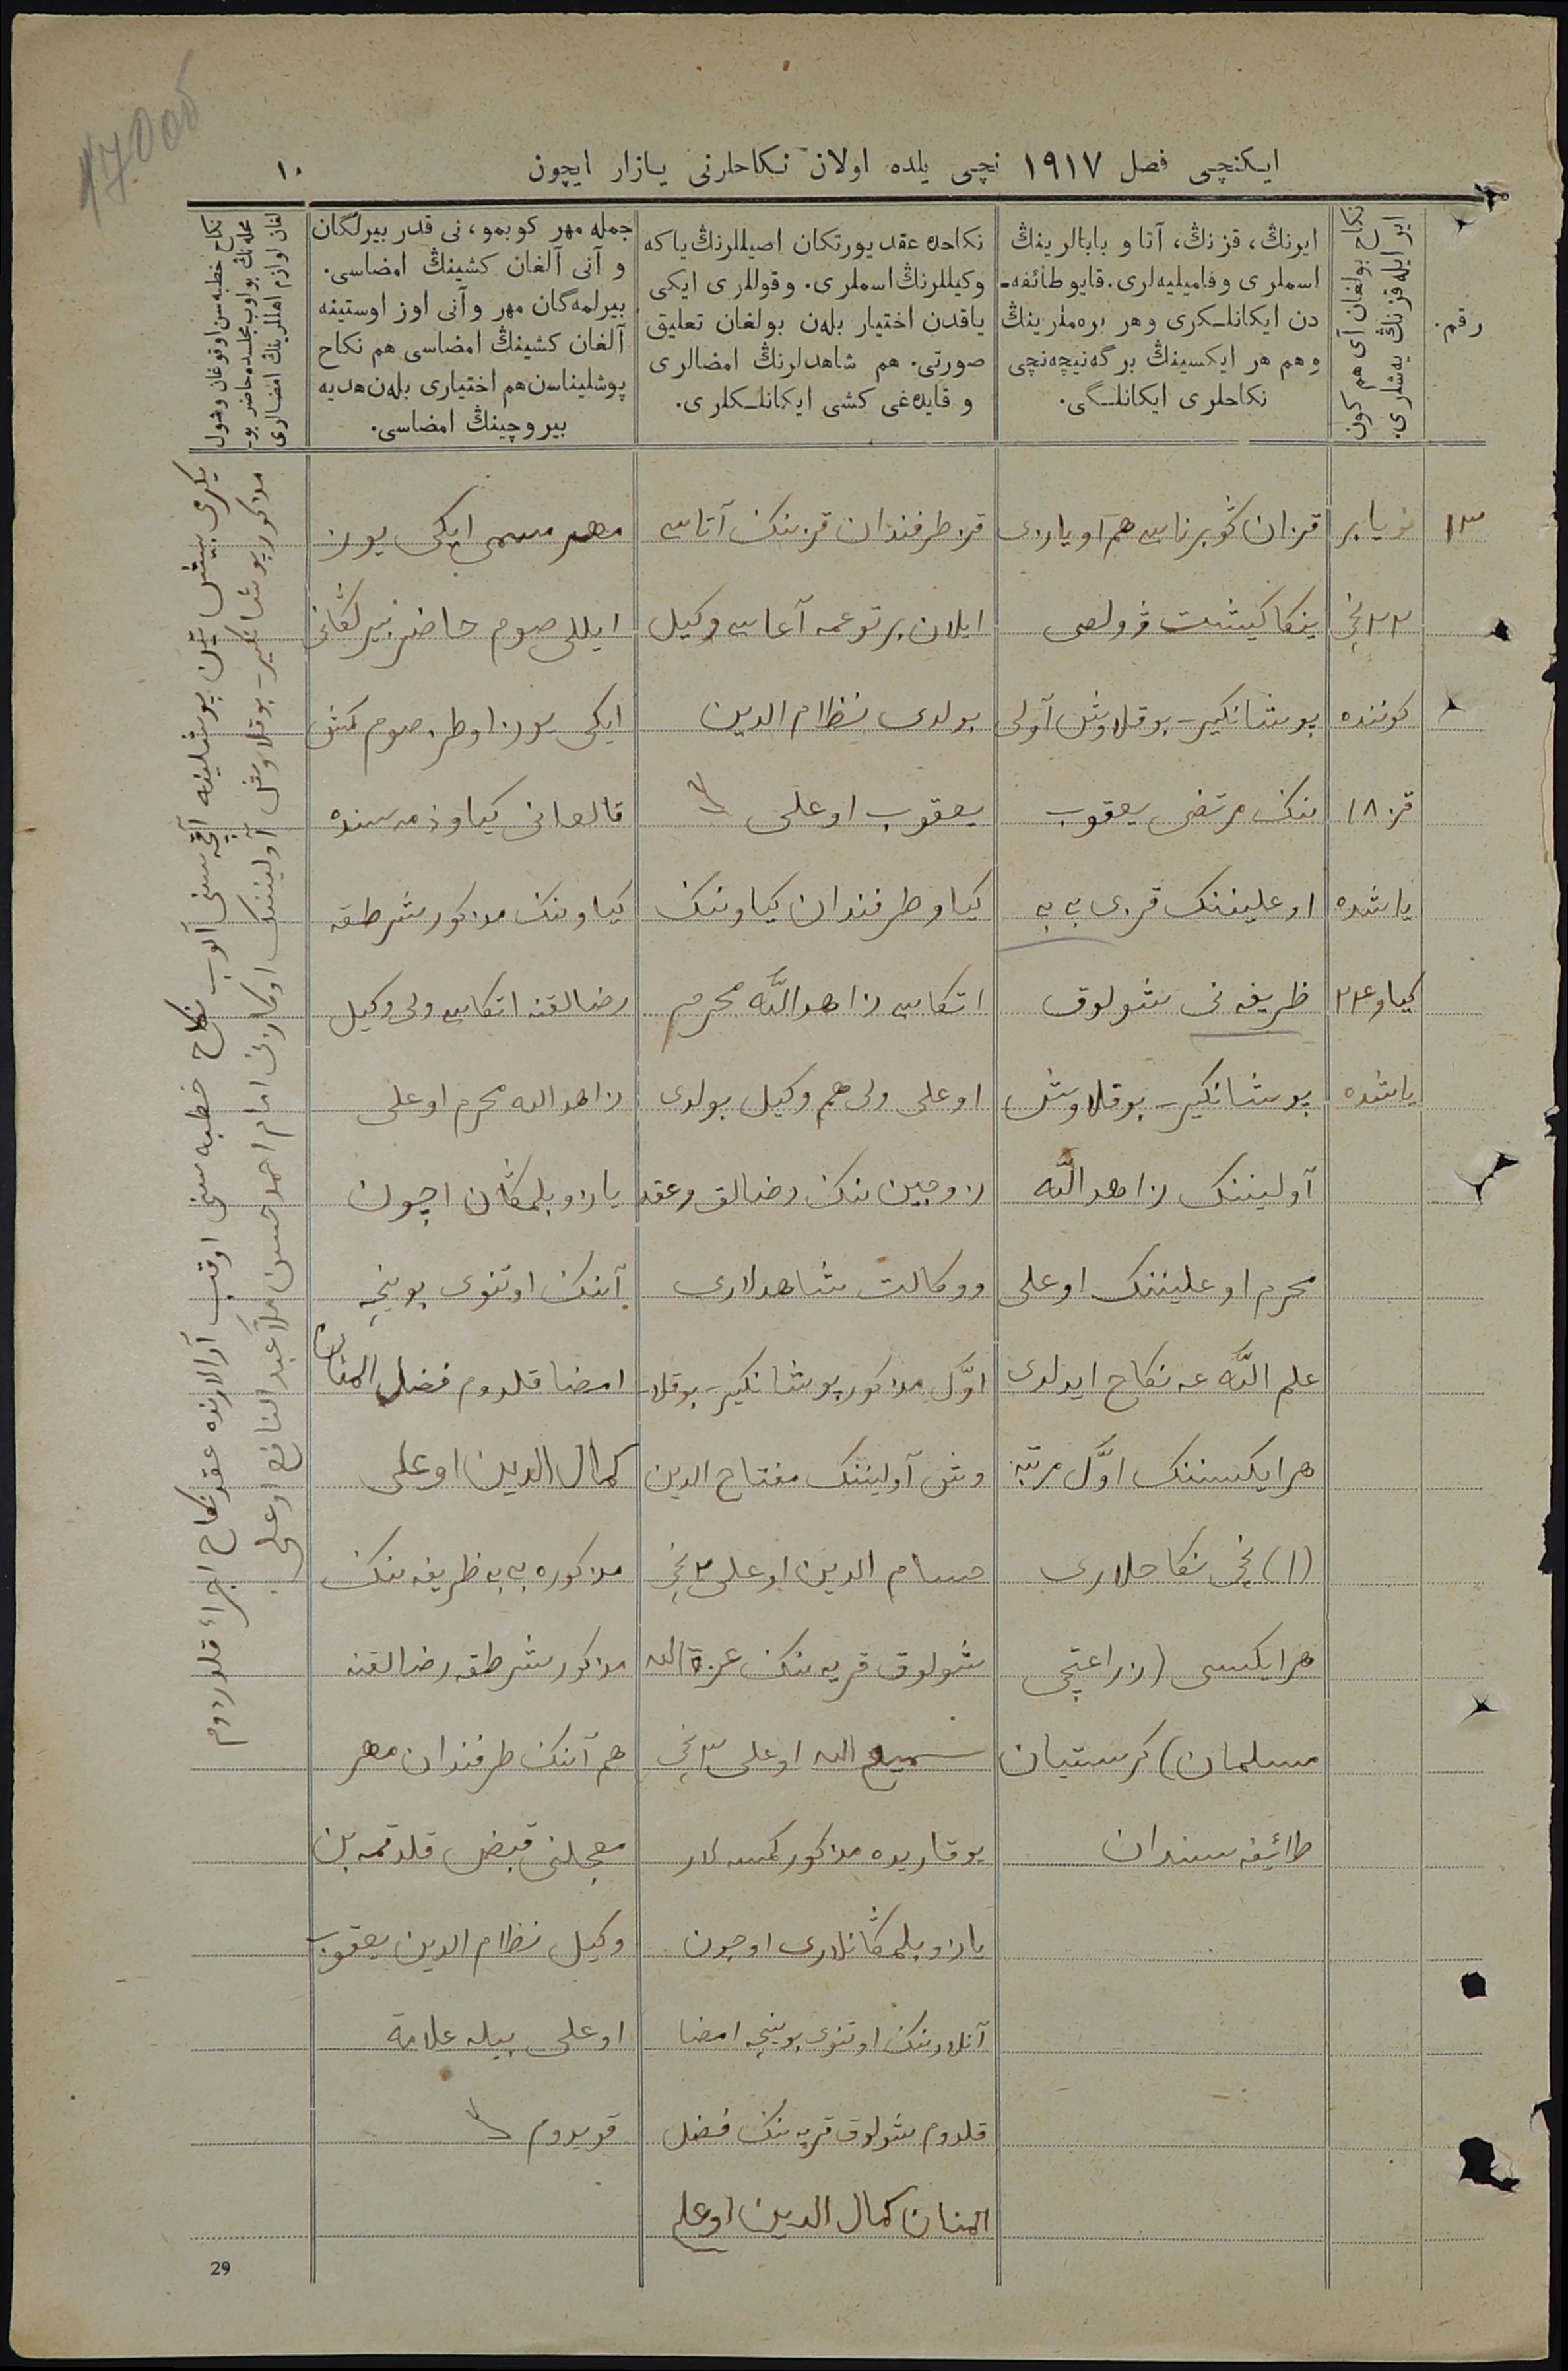 170об
ایکنچی فصل ١٩١٧ نچی یلده اولان نکاحلرنی یازار ایچون
١٠
رقم.
نکاح بولغان آی هم کون
ایر ایله قزنڭ یەشلری.
ایرنڭ، قزنڭ، آتا و بابالرینڭ
اسملری و فامیلیەلری. قایو طائفه‌ـ
دن ایکانلـکری وهر برەملرینڭ
وهم هر ایکسینڭ برگه نیچه‌نچی
نکاحلری ایکانلـگی.
نکاحده عقد یورتکان اصیللرنڭ یاکه
وکیللرنڭ اسملری. و قوللری ایکی
یاقدن اختیار بلەن بولغان تعلیق
صورتی. هم شاهدلرنڭ امضالری
و قایدەغی کشی ایکانلـکلری.
جمله مهر کوبمو، نی قدر بیرلگان
و آنی آلغان کشینڭ امضاسی.
بیرلمەگان مهر و آنی اوز اوستینه
آلغان کشینڭ امضاسی هم نکاح
پوشلیناسن هم اختیاری بلەن هدیه
بیروچینڭ امضاسی.
نکاح خطبه‌سن اوقوغان وشول
محلەنڭ بولوب مجلسده حاضر بو‌ـ
لغان لوازم اهللرینڭ امضالری
١٣
نویابر
٢٢ نچی
کوننده
قز ١٨
یاشده
کیاو ٢٤
یاشده
قزان گوبرناسی هم آویازی
ینکاکیشت ۋولصی
بوشانکیر - بوقلاوش آولی
ننک مرتضی یعقوب
اوغلیننک قزی بی بی
ظریفه نی شولوق
بوشانکیر - بوقلاوش
آولیننک زاهدالله
محرم اوغلیننک اوغلی
علم الله غه نکاح ایدلدی
هر ایکسننک اوّل مرتبه
(١) نچی نکاحلاری
هر ایکسی (زراعتچی
مسلمان) کرستیان
طائیفه سندان
قز طرفندان قزننک آتاسی
ایلان برتوغمه آغاسی وکیل
بولدی نظام الدین
یعقوب اوغلی
کیاو طرفندان کیاوننک
اتکاسی زاهدالله محرم
اوغلی ولی هم وکیل بولدی
زوجین ننک رضالق وعقد
ووکالت شاهدلاری
اوّل مذکور بوشانکیر - بوقلا‌ـ
وش آولیننک مفتاح الدین
حسام الدین اوغلی ٢ نچی
شولوق قریه ننک عزة الله
سمیع الله اوغلی ٣ نچی
یوقاریده مذکور کمسه لار
یازو بلمکانلاری اوچون
آنلارننک اوتنوی بوینچه امضا
قلدوم شولوق قریه ننک فضل
المنان کمال الدین اوغلی
مهر مسمی ایکی یوز
ایللی صوم حاضر بیرلکانی
ایکی یوز اوطز صوم
قالغانی کیاو ذمه سنده
کیاوننک مذکور شرطقه
رضالقنه اتکاسی ولی وکیل
زاهدالله محرم اوغلی
یازو بلمکان اچون
آننک اوتنوی بوینچه
امضا قلدوم فضل المنان
کمال الدین اوغلی
مذکوره بی بی ظریفه ننک
مذکور شرطقه رضالقنه
هم آننک طرفندان مهر
معجلنی قبض قلدقمه بن
وکیل نظام الدین یعقوب
اوغلی بیله علامة
قویدوم
یکرمی بیش تین پوشلینه آقچه سنی آلوب نکاح خطبه سنی اوقب آرالارنده عقد نکاح اجراء قلدردوم
مذکور بوشانکیر - بوقلاوش آولیننک اوکازنی امام احمد حسن ملا عبد النافع اوغلی
29